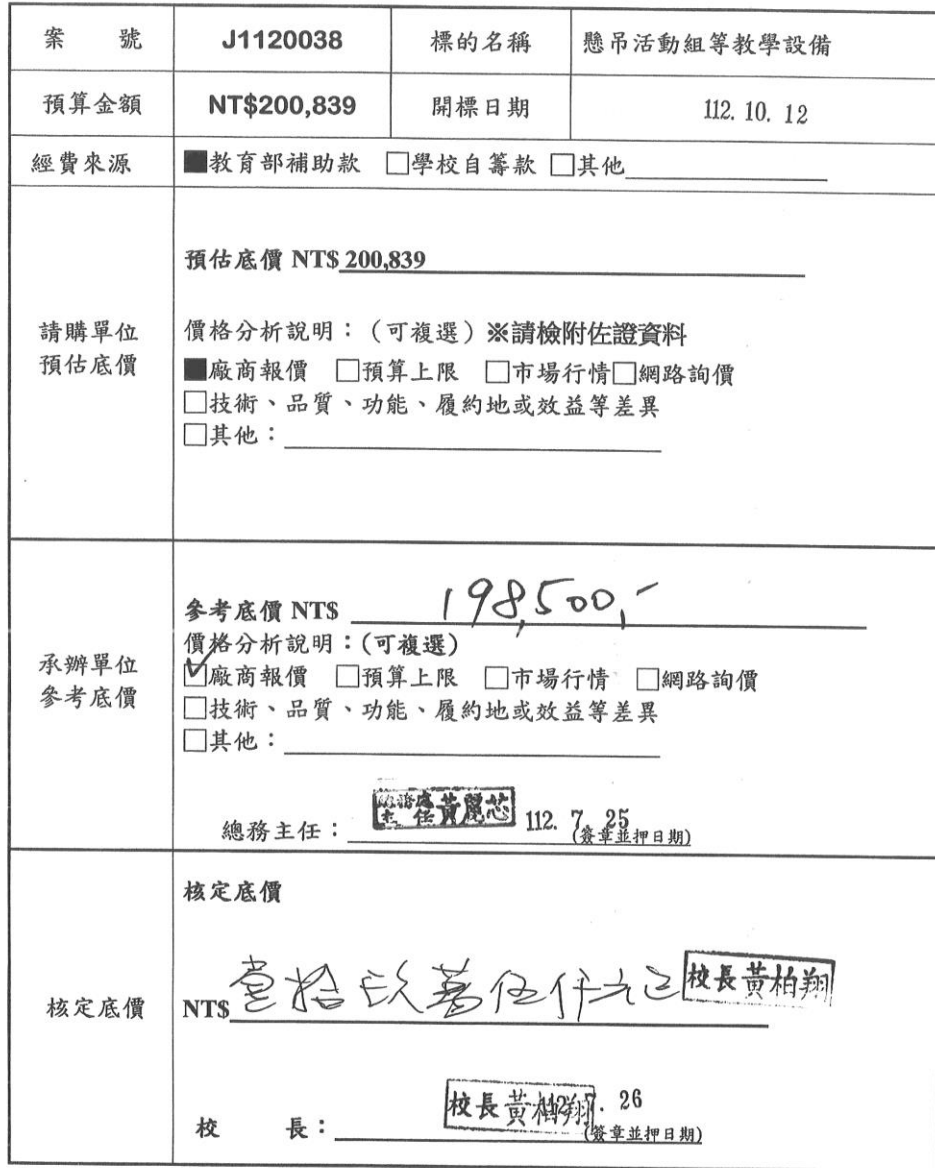 案 號 J1120038 標的名稱 懸吊活動組等教學設備
預算金額 NT$200,839 開標日期 112. 10. 12
經費來源 ■教育部補助款 □學校自籌款 □其他
預估底價 NT$ 200,839
請購單位
預估底價
價格分析說明：（可複選）※請檢附佐證資料
■廠商報價 □預算上限 □市場行情□網路詢價
□技術、品質、功能、履約地或效益等差異
□其他：
參考底價 NT$ 198,500,-
價格分析說明：(可複選)
承辦單位
參考底價
☑廠商報價 □預算上限 □市場行情 □網路詢價
□技術、品質、功能、履約地或效益等差異
□其他：
總務處
主任 黃麗芯
總務主任： 112. 7. 25
(簽章並押日期)
核定底價
核定底價
NT$ 壹拾玖萬伍仟元正 校長黃柏翔
校 長： 校長黃柏翔 112. 7. 26
(簽章並押日期)